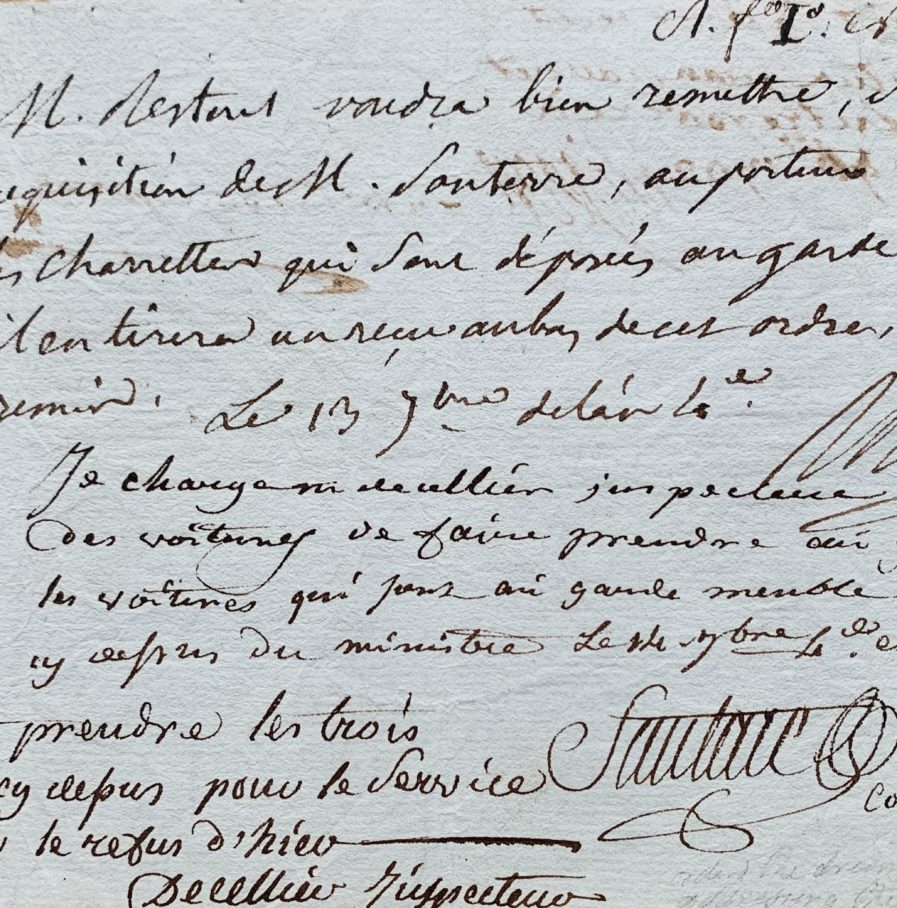 M. Restout voudra bien remettre,
quisition de M. Santerre, au porteur
les charrettes qui sont déposés au garde
il en tirera un reçu au bas de cet ordre,
Le 13 7bre de l'an 4.e
Je charge m decellier inspecteur
des voitures de faire prendre au
les voitures qui sont au garde meuble
cy dessus du ministre Le 14 7bre 4.e
prendre les trois
cy depus pour le Service
le refus d'hier
Santerre
Decellier Inspecteur